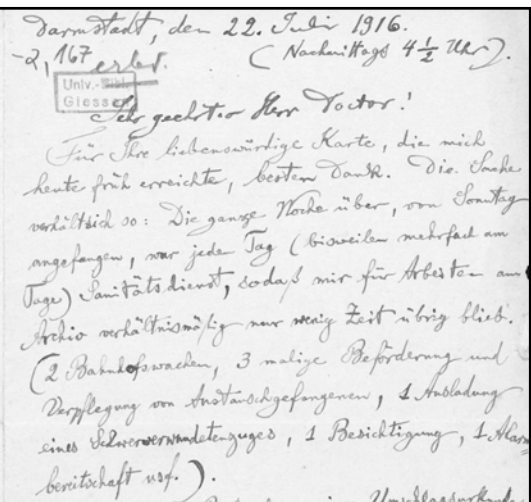 Darmstadt, den 22. Juli 1916.
-2, 167 erled. (Nachmittags 4½ Uhr).
Univ.-Bibl.
Giessen
Sehr geehrter Herr Doctor!
Für Ihre liebenswürdige Karte, die mich
heute früh erreichte, besten Dank. Die Sache
verhält sich so: Die ganze Woche über, von Sonntag
angefangen, war jeden Tag (bisweilen mehrfach am
Tage) Sanitätsdienst, sodaß mir für Arbeiten am
Archiv verhältnismäßig nur wenig Zeit übrig blieb.
(2 Bahnhofswachen, 3 malige Beförderung und
Verpflegung von Austauschgefangenen, 1 Ausladung
eines Schwerverwundetenzuges, 1 Besichtigung, 1 Alarm
bereitschaft usf.).